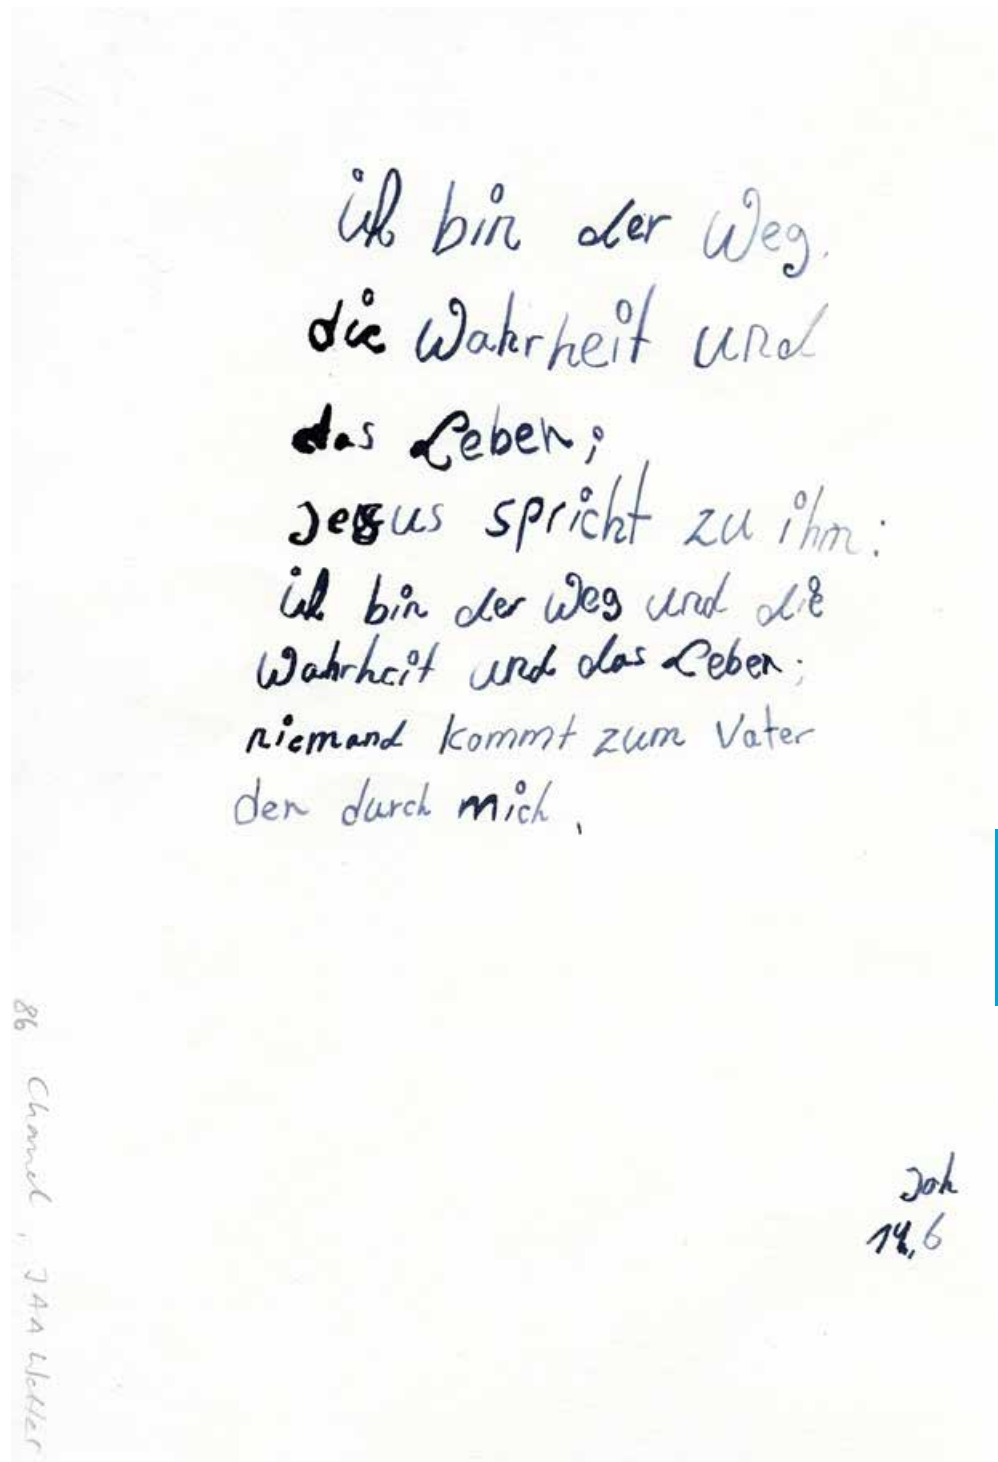 ich bin der Weg.
die Wahrheit und
das Leben;
Jesus spricht zu ihm:
ich bin der Weg und die
Wahrheit und das Leben;
niemand kommt zum Vater
den durch mich.
Joh
14,6
86 Chanel, JAA